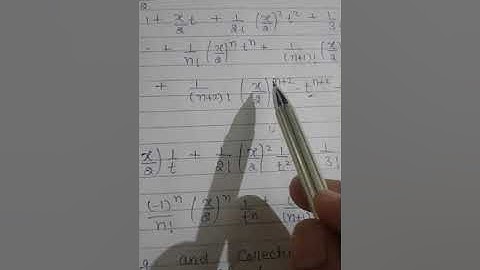 1 + \frac{x}{2} t + \frac{1}{2!} (\frac{x}{2})^2 t^2 + \frac{1}{3!}
+ \frac{1}{n!} (\frac{x}{2})^n t^n + \frac{1}{(n+1)!} (\frac{x}{2}
+ \frac{1}{(n+2)!} (\frac{x}{2})^{n+2} t^{n+2}
\frac{x}{2}) \frac{1}{t} + \frac{1}{2!} (\frac{x}{2})^2 \frac{1}{t^2} \frac{1}{3!}
\frac{(-1)^n}{n!} (\frac{x}{2})^n \frac{1}{t^n} + \frac{}{(n+1)
and Collecti